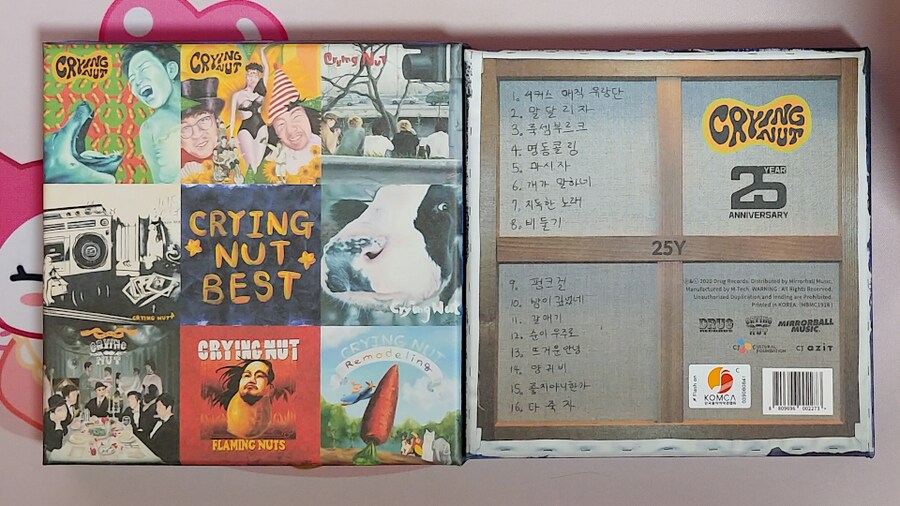 CRYING NUT
CRYING NUT
Crying Nut
CRYING NUT
CRYING
NUT
BEST
Crying Nut
CRYING NUT
CRYING NUT
FLAMING NUTS
CRYING NUT
Remodeling
1. 서커스 매직 유랑단
2. 말달리자
3. 룩셈부르크
4. 명동콜링
5. 마시자
6. 개가 말하네
7. 지독한 노래
8. 비둘기
CRYING NUT
25 YEAR
ANNIVERSARY
25Y
9. 펑크걸
10. 밤이 깊었네
11. 갈매기
12. 순이 우주로
13. 뜨거운 안녕
14. 양귀비
15. 룰지아니한가
16. 타 죽 자
Ⓟ&© 2020 Drug Records. Distributed by Mirrorball Music.
Manufactured by M-Tech. WARNING: All Rights Reserved.
Unauthorized Duplication and lending are Prohibited.
Printed in KOREA. (MBMC1928)
DRUG RECORDS
CRYING NUT
MIRRORBALL MUSIC
CJ CULTURAL FOUNDATION
CJ AZIT
KOMCA
한국음악저작권협회
8 809696 002273